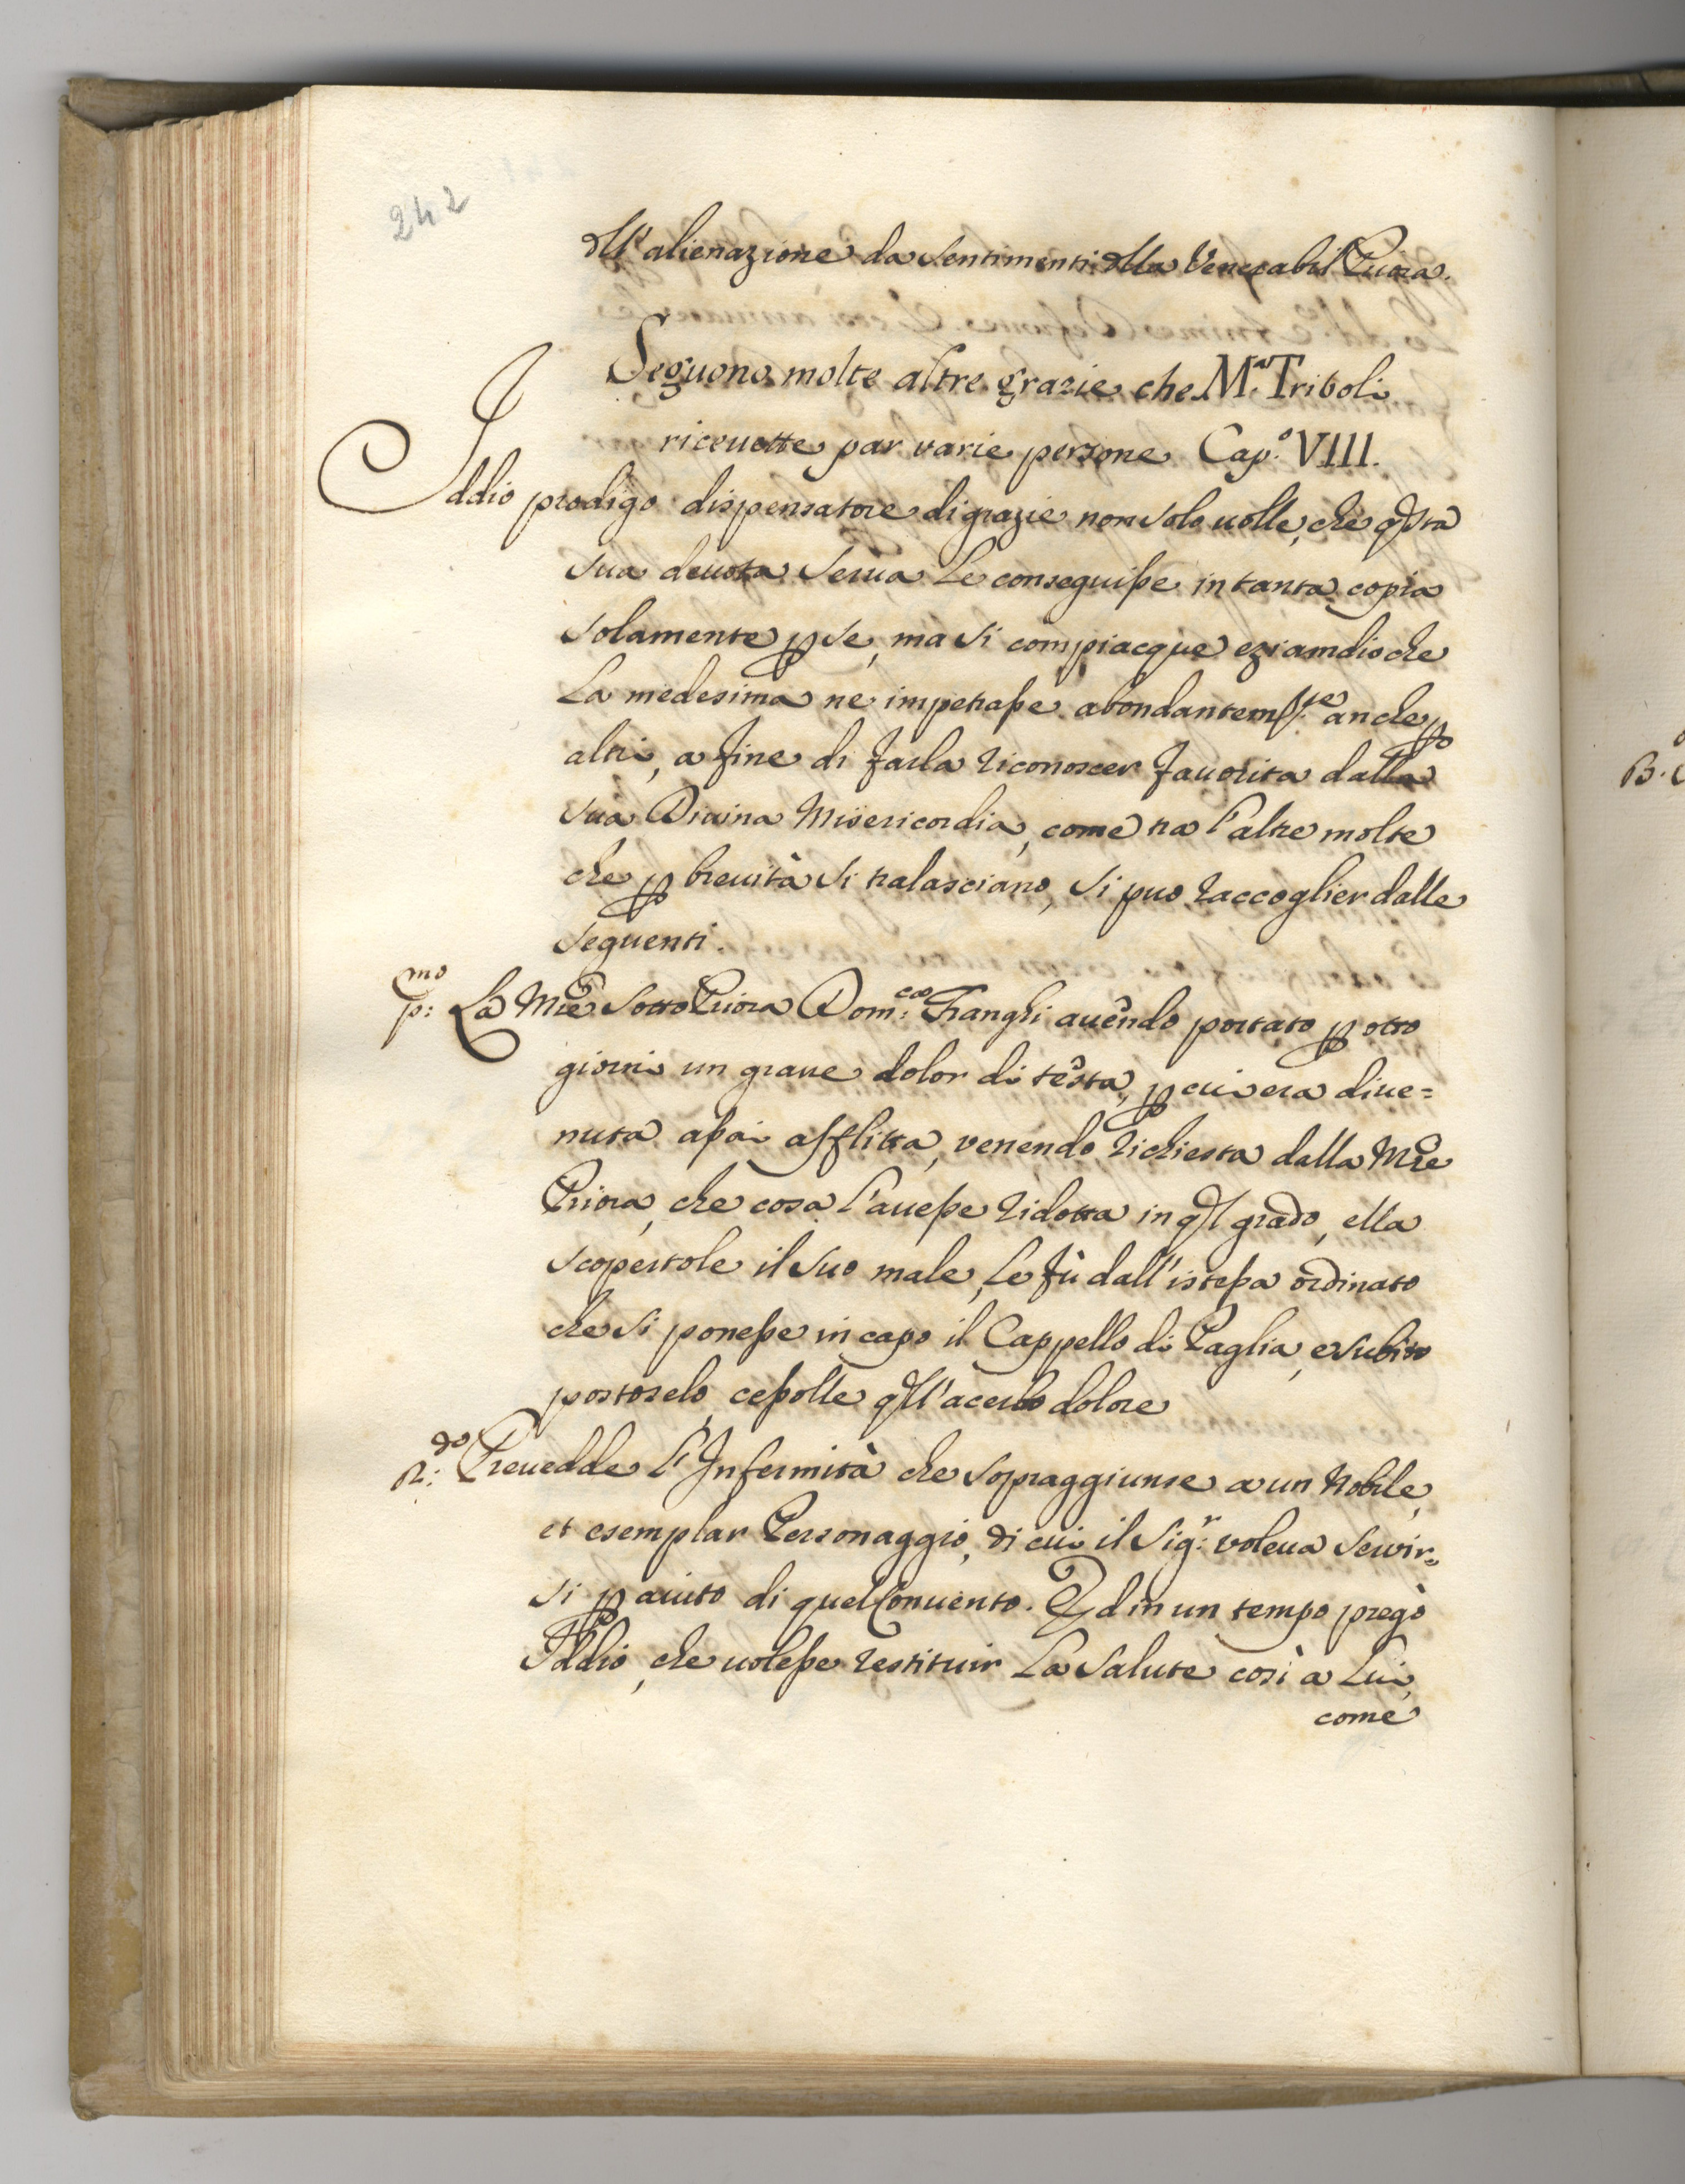 242
dll'alienazione da sentimenti dlla Venerabil Priora.
Seguono molte altre grazie che M.ª Triboli
riceuette par varie persone Cap.º VIII.
Iddio prodigo dispensatore di grazie non solo uolle, che qsta
sua deuota serua le conseguisse in tanta copia
solamente p se, ma si compiacque eziamdio che
la medesima ne impetrasse abondantem.te anche p
altri, a fine di farla riconoscer fauorita dalla
sua Diuina Misericordia, come tra l'altre molte
che p breuità si tralasciano, si puo raccoglier dalle
seguenti.
p:mo La Mre Sotto Priora Dom:ca Frangli auendo portato p otto
giorni un graue dolor di testa, p cui era diue=
nuta assai afflitta, venendo richiesta dalla Mre
Priora, che cosa l'auesse ridotta in ql grado, ella
scopertole il suo male, le fù dall'istessa ordinato
che si ponesse in capo il Cappello di Paglia, e subito
postoselo, cessolle qll'acerbo dolore
2:do Preuedde l'Infermità che sopraggiunse a un Nobile,
et esemplar Personaggio, di cui il Sig:r voleua seruir=
si p aiuto di quel Conuento. Ed in un tempo pregò
Iddio, che uolesse restituir la salute così a lui,
come